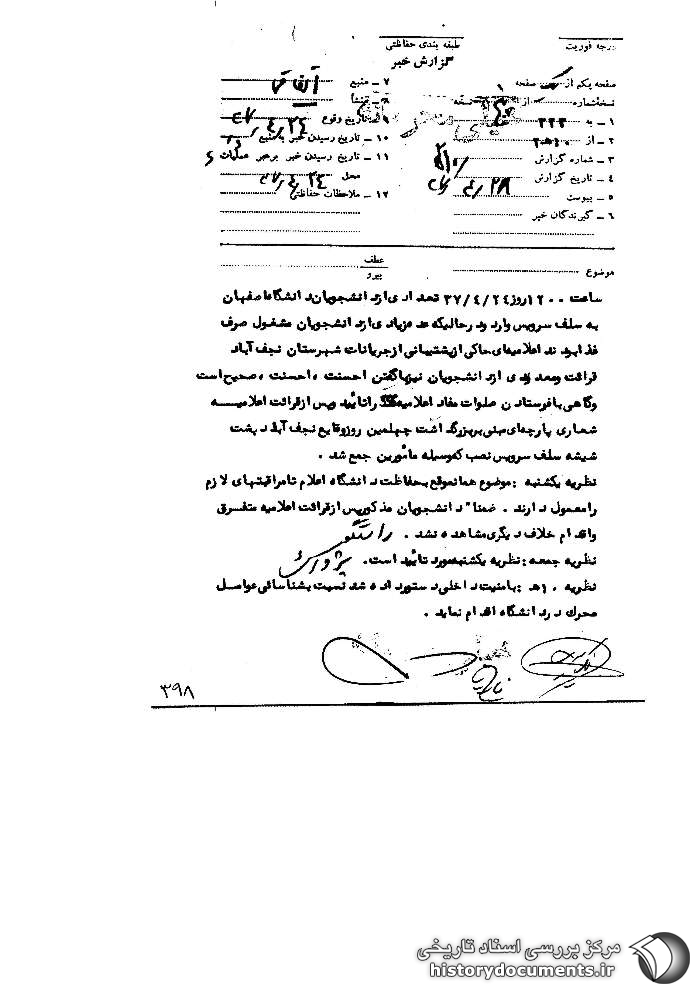 طبقه بندی حفاظتی
درجه فوریت
گزارش خبر
صفحه یکم از یک صفحه
نسخه شماره از نسخه
۱ ـ به ۳۲۲
۲ ـ از
۳ ـ شماره گزارش
۴ ـ تاریخ گزارش ۲۸/۴/۳۷
۵ ـ پیوست
۶ ـ گیرندگان خبر
۷ ـ منبع
۸ ـ منشأ
۹ ـ تاریخ وقوع ۲۴/۴/۳۷
۱۰ ـ تاریخ رسیدن خبر به منبع
۱۱ ـ تاریخ رسیدن خبر برهبر عملیات
محل ۲۴/۴/۳۷
۱۲ ـ ملاحظات حفاظتی
موضوع
عطف
پیرو
ساعت ۱۲۰۰ روز ۳۷/۴/۲۴ تعدادی از دانشجویان دانشگاه اصفهان
به سلف سرویس وارد و در حالیکه عده زیادی از دانشجویان مشغول صرف
غذا بودند اعلامیه‌ای حاکی از پشتیبانی از جریانات شهرستان نجف آباد
قرائت و معدودی از دانشجویان نیز با گفتن احسنت ، احسنت ، صحیح است
و گاهی با فرستادن صلوات مفاد اعلامیه را تأیید و پس از قرائت اعلامیه
شعاری پارچه‌ای مبنی بر بزرگداشت چهلمین روز وقایع نجف آباد به پشت
شیشه سلف سرویس نصب که وسیله مأمورین جمع شد .
نظریه یکشنبه : موضوع همانموقع بحفاظت دانشگاه اعلام تا مراقبتهای لازم
را معمول دارند . ضمنا" دانشجویان مذکور پس از قرائت اعلامیه متفرق
و اقدام خلاف دیگری مشاهده نشد . راستگو
نظریه جمعه : نظریه یکشنبه مورد تأیید است.
نظریه ۱۰ هـ : بامنیت داخلی دستور داده شد نسبت بشناسائی عوامل
محرک در دانشگاه اقدام نماید .
۳۹۸
مرکز بررسی اسناد تاریخی
historydocuments.ir